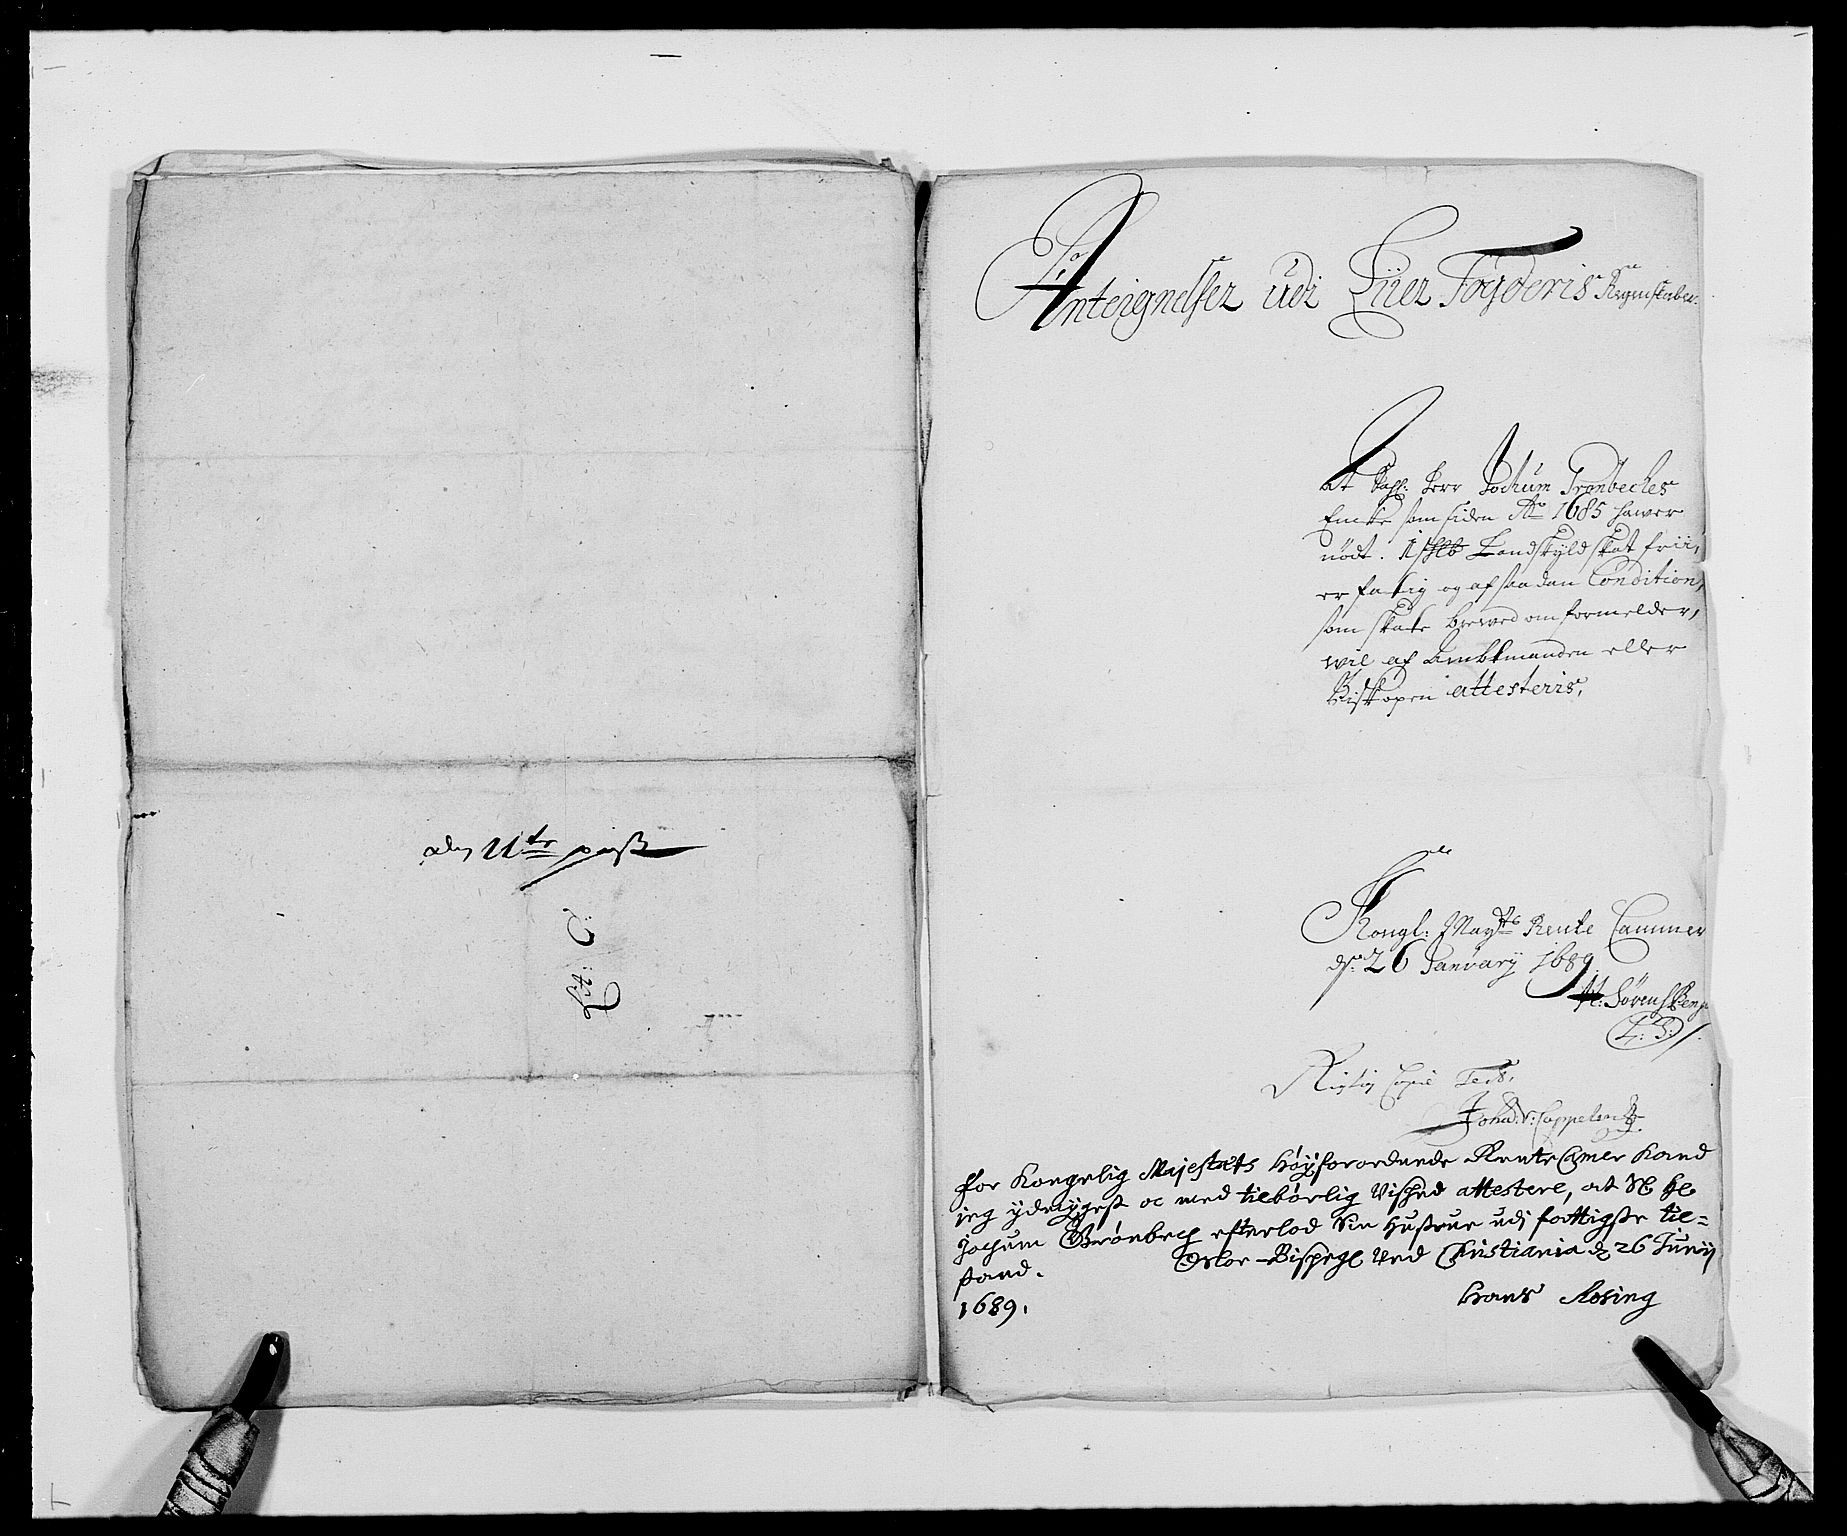 den 11te post
Lit: C
Anteignelser udi Liier Fogderis Regenskaber.
At Sahl: Herr Jochum Grønbeches
Encke som siden Ao 1685 hawer
nødt 1 Landskyld skat frii,
er fattig og af saadan Condition,
som skatte brewed om formelder,
wil af Ambtmanden eller
Biskopen attesteris,
Kongl: Mayts Rente Cammer
ds 26 January 1689.
Sørensen
L: S:
Rigtig Copie Test,
Johan v: Cappelen
For Kongelig Majestæts Høyforordnede Rente Camer kand
jeg ydmygest oc med tilbørlig Vished attestere, at Sl Hr
Jochum Grønbech efterlod Sin Hustrue udj fattigste til=
stand. Osloe-Bispegl ved Christiania d 26 Junij
1689. Hans Rosing